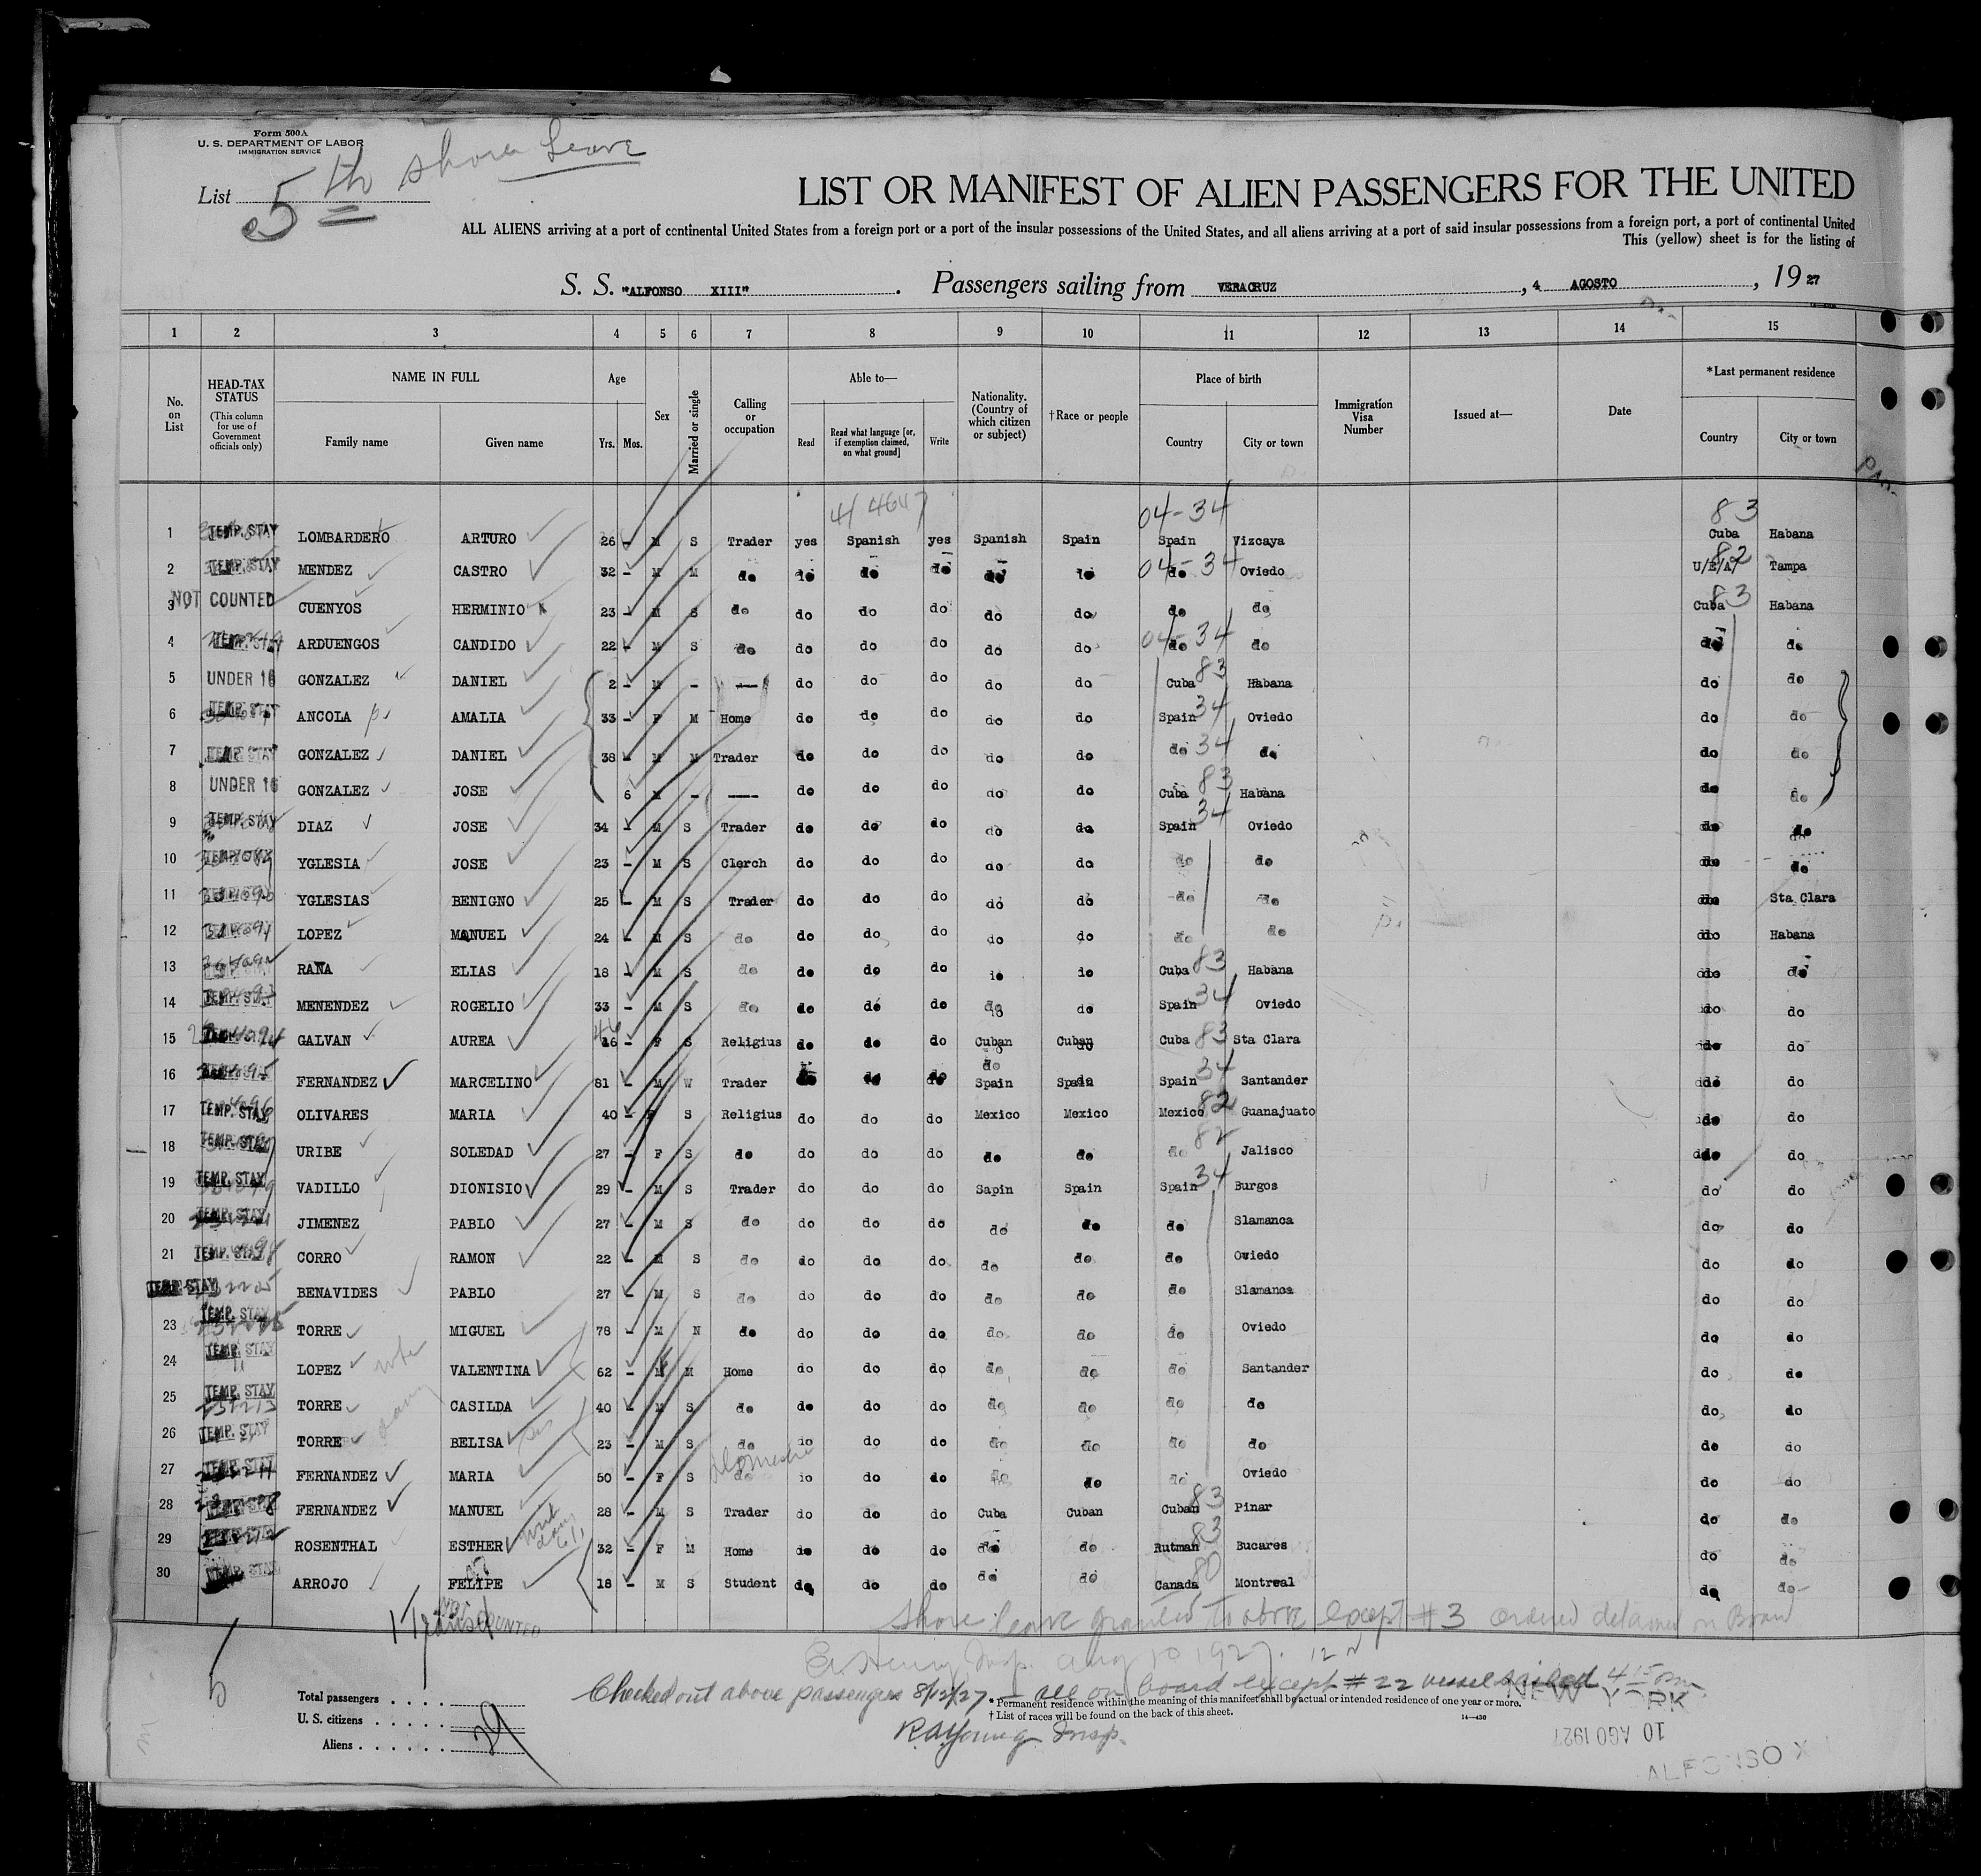 Form 500A
U. S. DEPARTMENT OF LABOR
IMMIGRATION SERVICE
List 5th Shore Leave
LIST OR MANIFEST OF ALIEN PASSENGERS FOR THE UNITED
ALL ALIENS arriving at a port of continental United States from a foreign port or a port of the insular possessions of the United States, and all aliens arriving at a port of said insular possessions from a foreign port, a port of continental United
This (yellow) sheet is for the listing of
S. S. "ALFONSO XIII". Passengers sailing from VERACRUZ, 4 AGOSTO, 1927
1 2 3 4 5 6 7 8 9 10 11 12 13 14 15
No. on List
HEAD-TAX STATUS (This column for use of Government officials only)
NAME IN FULL Family name Given name
Age Yrs. Mos.
Sex
Married or single
Calling or occupation
Able to— Read Read what language [or, if exemption claimed, on what ground] Write
Nationality. (Country of which citizen or subject)
†Race or people
Place of birth Country City or town
Immigration Visa Number
Issued at—
Date
*Last permanent residence Country City or town
04-34 83
1 TEMP. STAY LOMBARDERO ARTURO 26 - M S Trader yes Spanish yes Spanish Spain Spain Vizcaya Cuba Habana
2 TEMP. STAY MENDEZ CASTRO 32 - M M do do do do do do 04-34 do Oviedo 82 U/E/A/ Tampa
3 NOT COUNTED CUENYOS HERMINIO 23 - M S do do do do do do do do 83 Cuba Habana
4 TEMP. STAY ARDUENGOS CANDIDO 22 - M S do do do do do do 04-34 do do do do
5 UNDER 16 GONZALEZ DANIEL 2 - M - — do do do do do Cuba 83 Habana do do
6 TEMP. STAY ANCOLA AMALIA 33 - F M Home do do do do do Spain 34 Oviedo do do
7 TEMP. STAY GONZALEZ DANIEL 38 - M M Trader do do do do do do 34 do do do
8 UNDER 16 GONZALEZ JOSE 6 M - — do do do do do Cuba 83 Habana do do
9 TEMP. STAY DIAZ JOSE 34 - M S Trader do do do do do Spain 34 Oviedo do do
10 TEMP. STAY YGLESIA JOSE 23 - M S Clerch do do do do do do do do do
11 TEMP. STAY YGLESIAS BENIGNO 25 - M S Trader do do do do do do do do Sta Clara
12 TEMP. STAY LOPEZ MANUEL 24 - M S do do do do do do do do do Habana
13 TEMP. STAY RAÑA ELIAS 18 - M S do do do do do do Cuba 83 Habana do do
14 TEMP. STAY MENENDEZ ROGELIO 33 - M S do do do do do do Spain 34 Oviedo do do
15 TEMP. STAY GALVAN AUREA 46 - F S Religius do do do Cuban Cuban Cuba 83 Sta Clara do do
16 FERNANDEZ MARCELINO 81 - M W Trader do do do Spain Spain Spain 34 Santander do do
17 TEMP. STAY OLIVARES MARIA 40 - F S Religius do do do Mexico Mexico Mexico 82 Guanajuato do do
18 TEMP. STAY URIBE SOLEDAD 27 - F S do do do do do do do 82 Jalisco do do
19 TEMP. STAY VADILLO DIONISIO 29 - M S Trader do do do Sapin Spain Spain 34 Burgos do do
20 TEMP. STAY JIMENEZ PABLO 27 - M S do do do do do do do Slamanca do do
21 TEMP. STAY CORRO RAMON 22 - M S do do do do do do do Oviedo do do
TEMP. STAY BENAVIDES PABLO 27 - M S do do do do do do do Slamanca do do
23 TEMP. STAY TORRE MIGUEL 78 - M N do do do do do do do Oviedo do do
24 TEMP. STAY LOPEZ wife VALENTINA 62 - M M Home do do do do do do Santander do do
25 TEMP. STAY TORRE CASILDA 40 - M S do do do do do do do do do do
26 TEMP. STAY TORRE BELISA 23 - M S do do do do do do do do do do
27 TEMP. STAY FERNANDEZ MARIA 50 - F S Domestic do do do do do do do Oviedo do do
28 TEMP. STAY FERNANDEZ MANUEL 28 - M S Trader do do do Cuba Cuban Cuban 83 Pinar do do
29 ROSENTHAL ESTHER 32 - F M Home do do do do do Rutman 83 Bucares do do
30 TEMP. STAY ARROJO FELIPE 18 - M S Student do do do do do Canada 80 Montreal do do
1 Transit
NOT COUNTED
Shore leave granted to above except #3 ordered detained on Board
Insp. Aug 10 1927. 12 N
Checked out above passengers 8/12/27 — all on board except #22 vessel sailed 4:15 pm.
Total passengers
U. S. citizens
Aliens 29
* Permanent residence within the meaning of this manifest shall be actual or intended residence of one year or more.
† List of races will be found on the back of this sheet.
14—430
R A Young Insp.
NEW YORK
10 AGO 1927
ALFONSO X